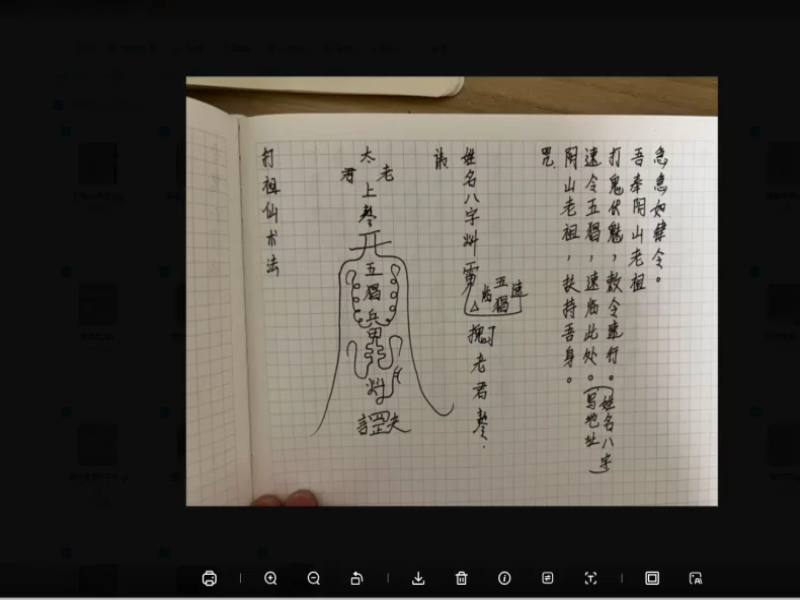 急急如律令。
吾奉阴山老祖
打鬼伏魅,敕令速行。(姓名八字
速令五猖,速临此处。写地址)
阴山老祖,扶持吾身。
咒
姓名八字
五猖
速
老君
太上
老君
五猖兵
打祖仙术法